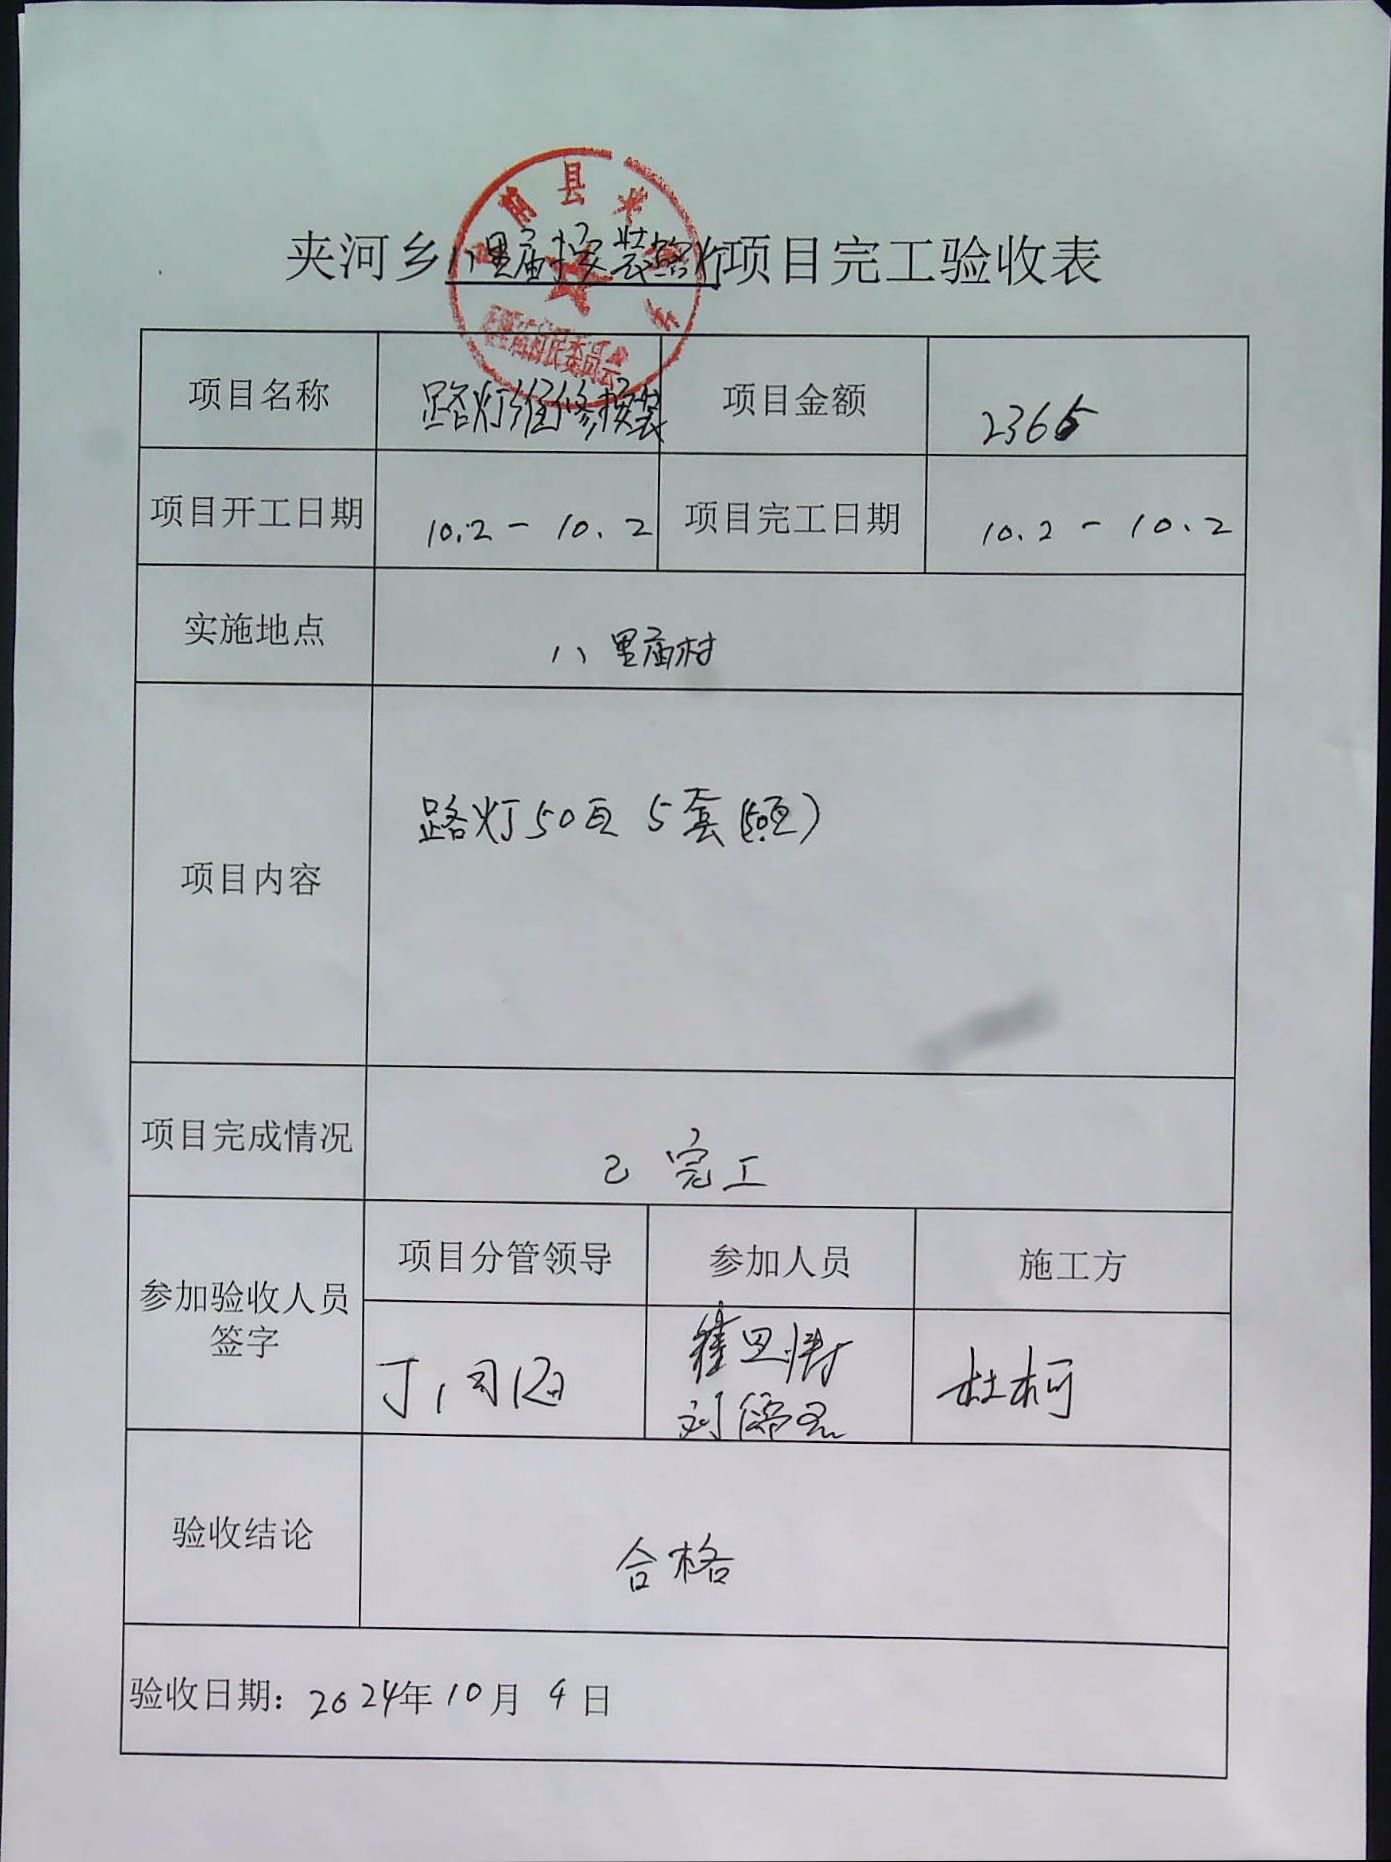 夹河乡八里庙按装路灯项目完工验收表
县
村民委员会
项目名称 路灯维修按装 项目金额 2365
项目开工日期 10.2-10.2 项目完工日期 10.2-10.2
实施地点 八里庙村
项目内容 路灯50瓦5套(50瓦)
项目完成情况 已完工
参加验收人员签字 项目分管领导 参加人员 施工方
杜柯
验收结论 合格
验收日期：2024年10月4日